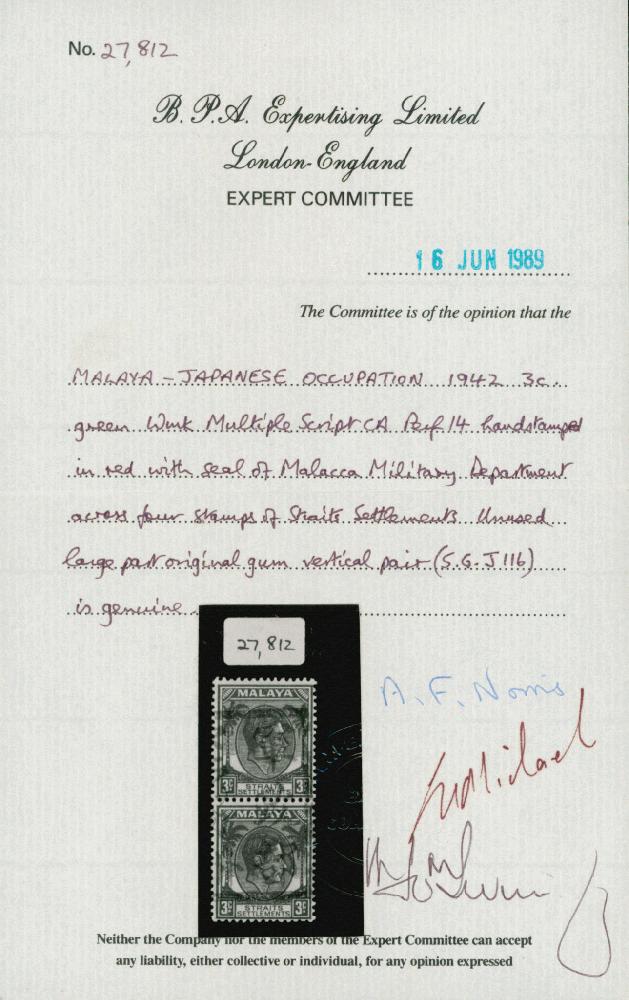 No. 27,812
B. P. A. Expertising Limited
London-England
EXPERT COMMITTEE
16 JUN 1989
The Committee is of the opinion that the
MALAYA – JAPANESE OCCUPATION 1942 3c.
green Wmk Multiple Script CA Perf 14 handstamped
in red with seal of Malacca Military Department
across four stamps of Straits Settlements Unused
large part original gum vertical pair (S.G. J116)
is genuine.
27,812
MALAYA
3c STRAITS SETTLEMENTS 3c
MALAYA
3c STRAITS SETTLEMENTS 3c
A. F. Norris
Neither the Company nor the members of the Expert Committee can accept
any liability, either collective or individual, for any opinion expressed